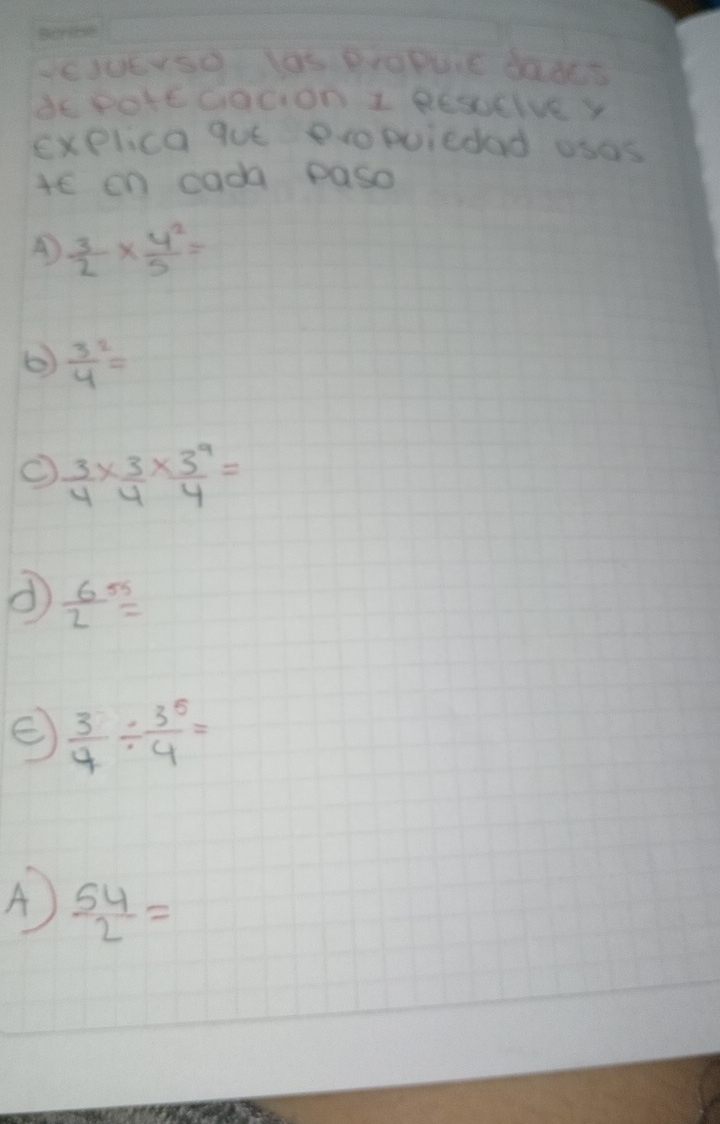 las propuie dades
de potE Gacion 1 RESUElVE y
Explica que propuiedad usas
te en cada paso
A) 3/2 × 4²/5 =
b) 3²/4 =
c) 3/4 × 3/4 × 3⁹/4 =
d) 6⁵⁵/2 =
E) 3/4 ÷ 3⁵/4 =
A) 54/2 =